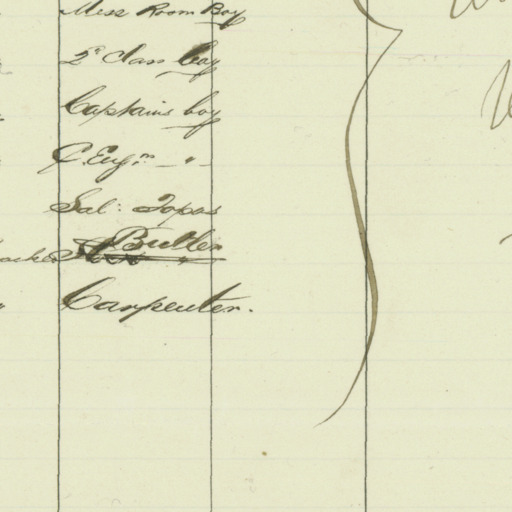 Mess Room Boy
2d Class boy
Captains boy
C. Engrs "
Sal: Topas
Butler
Carpenter.